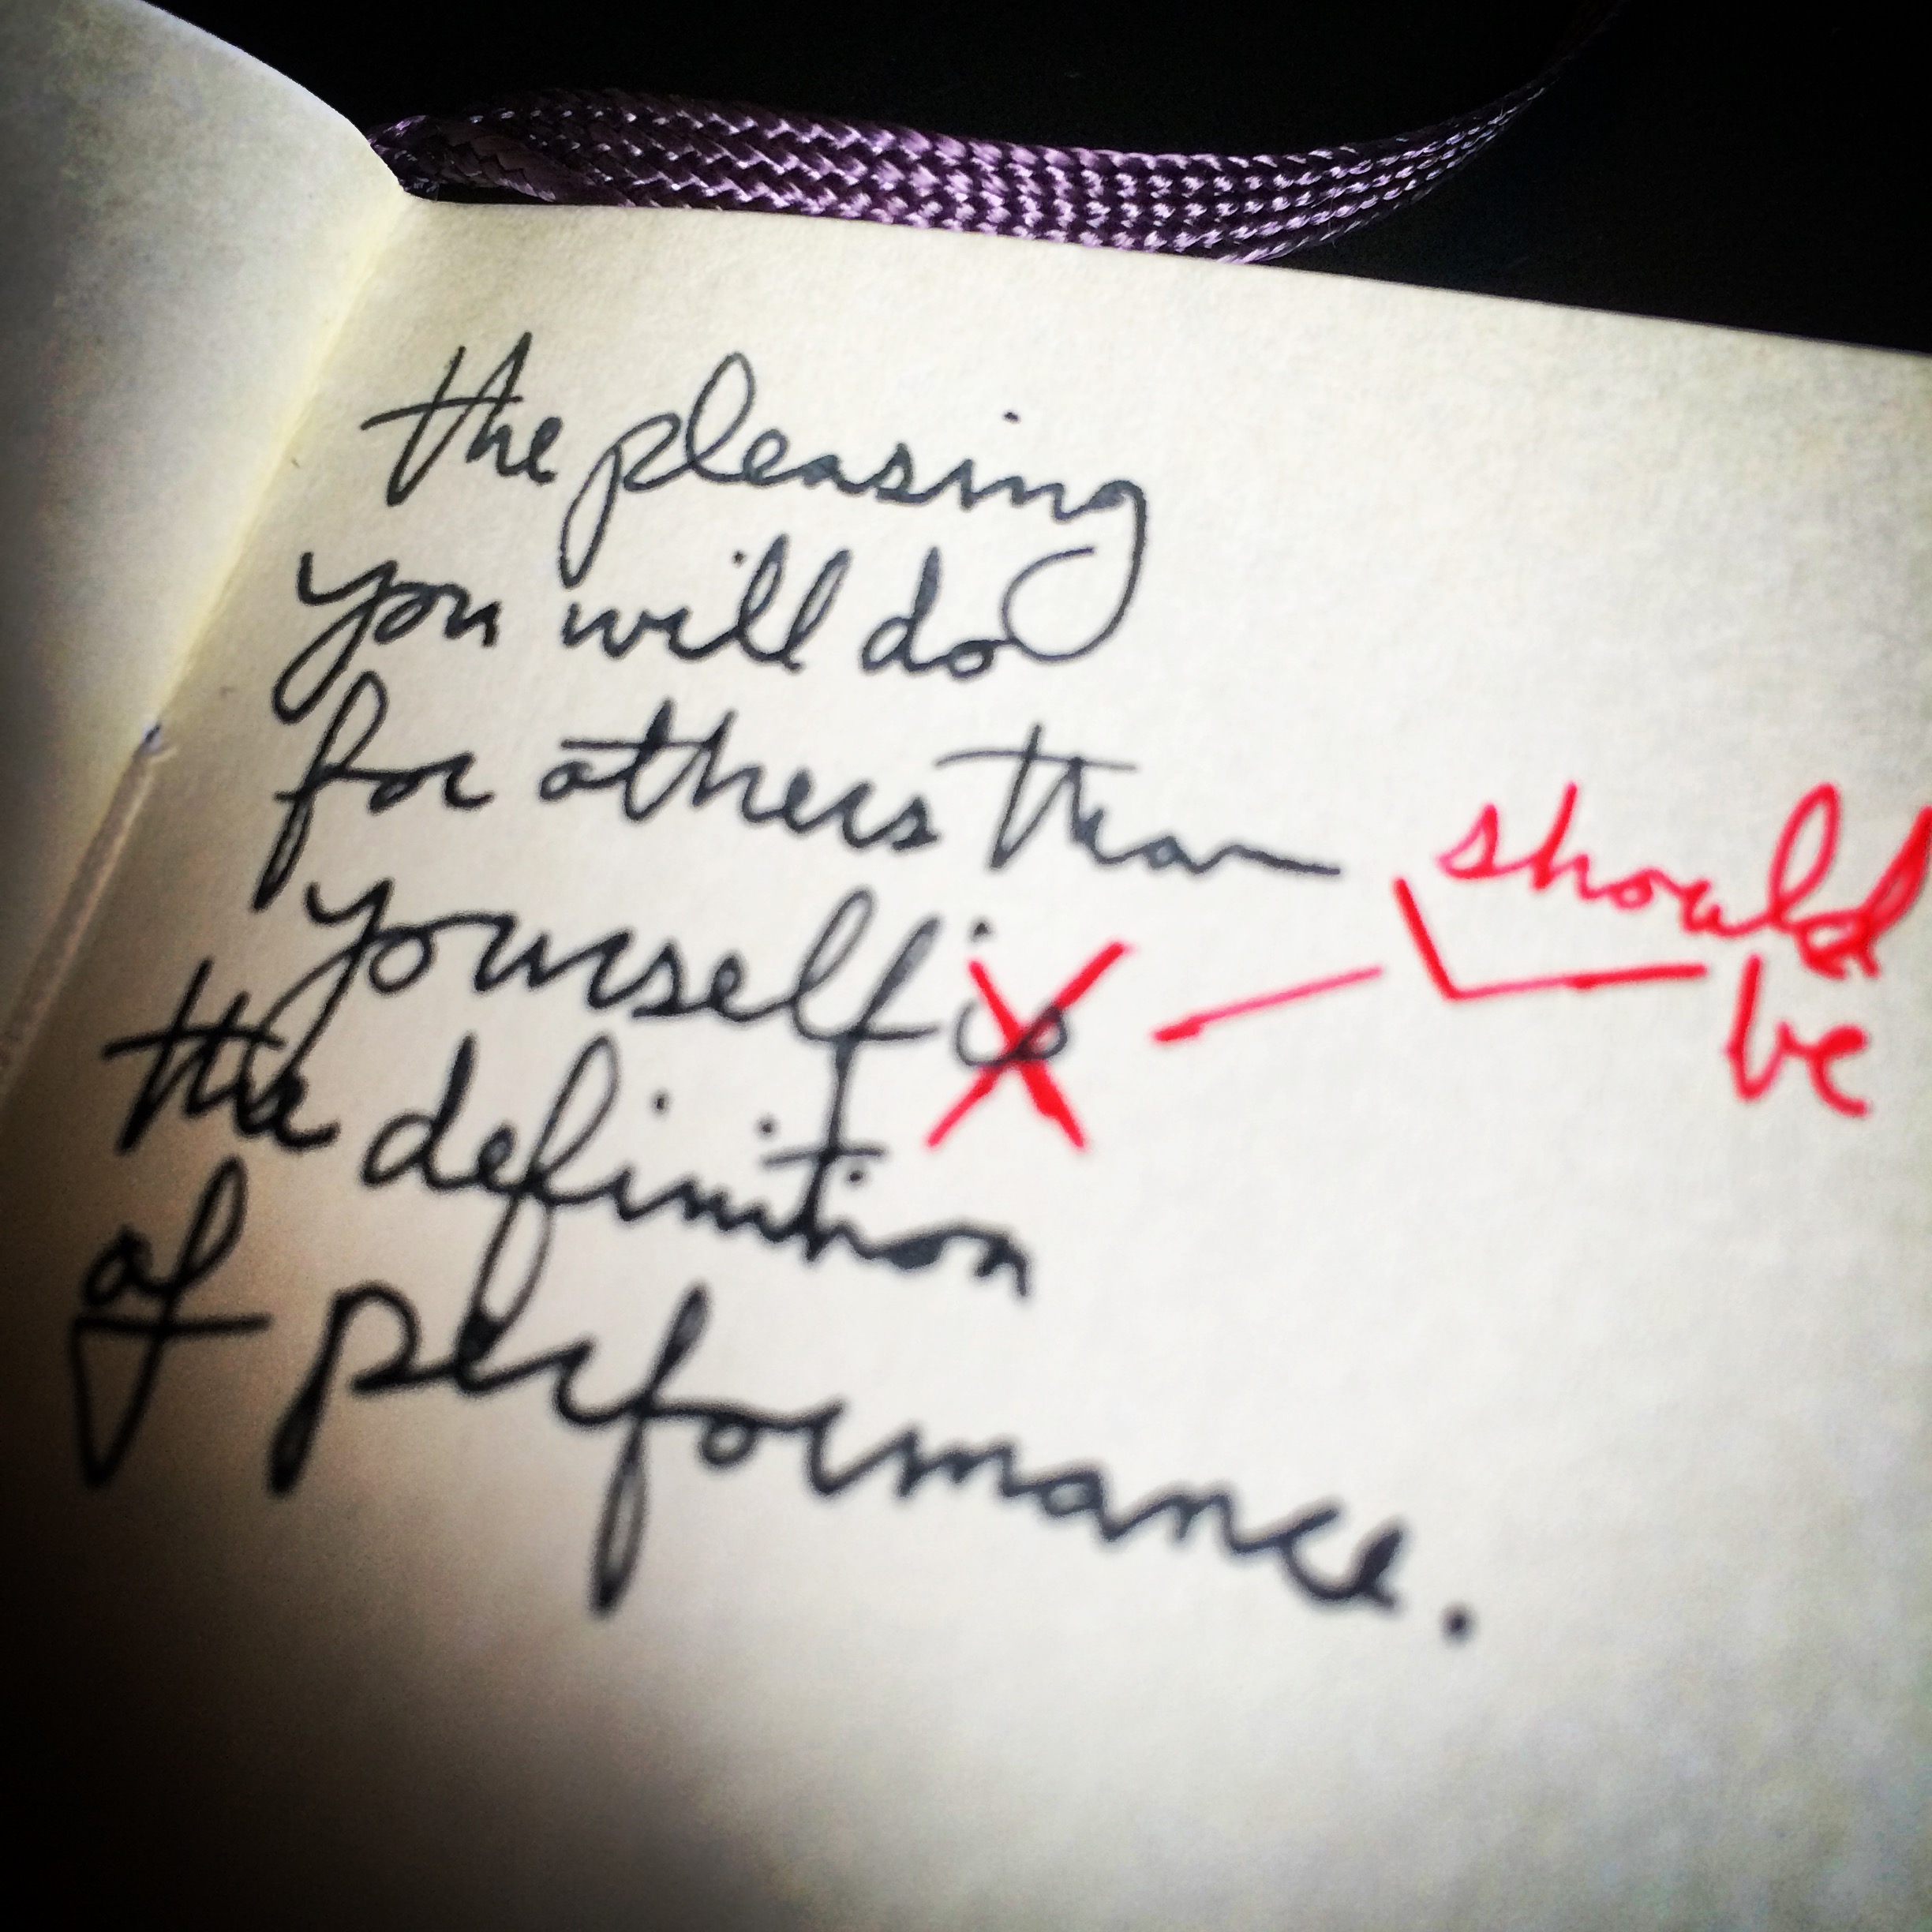 the pleasing
you will do
for others than
yourself is
should
be
the definition
of performance.